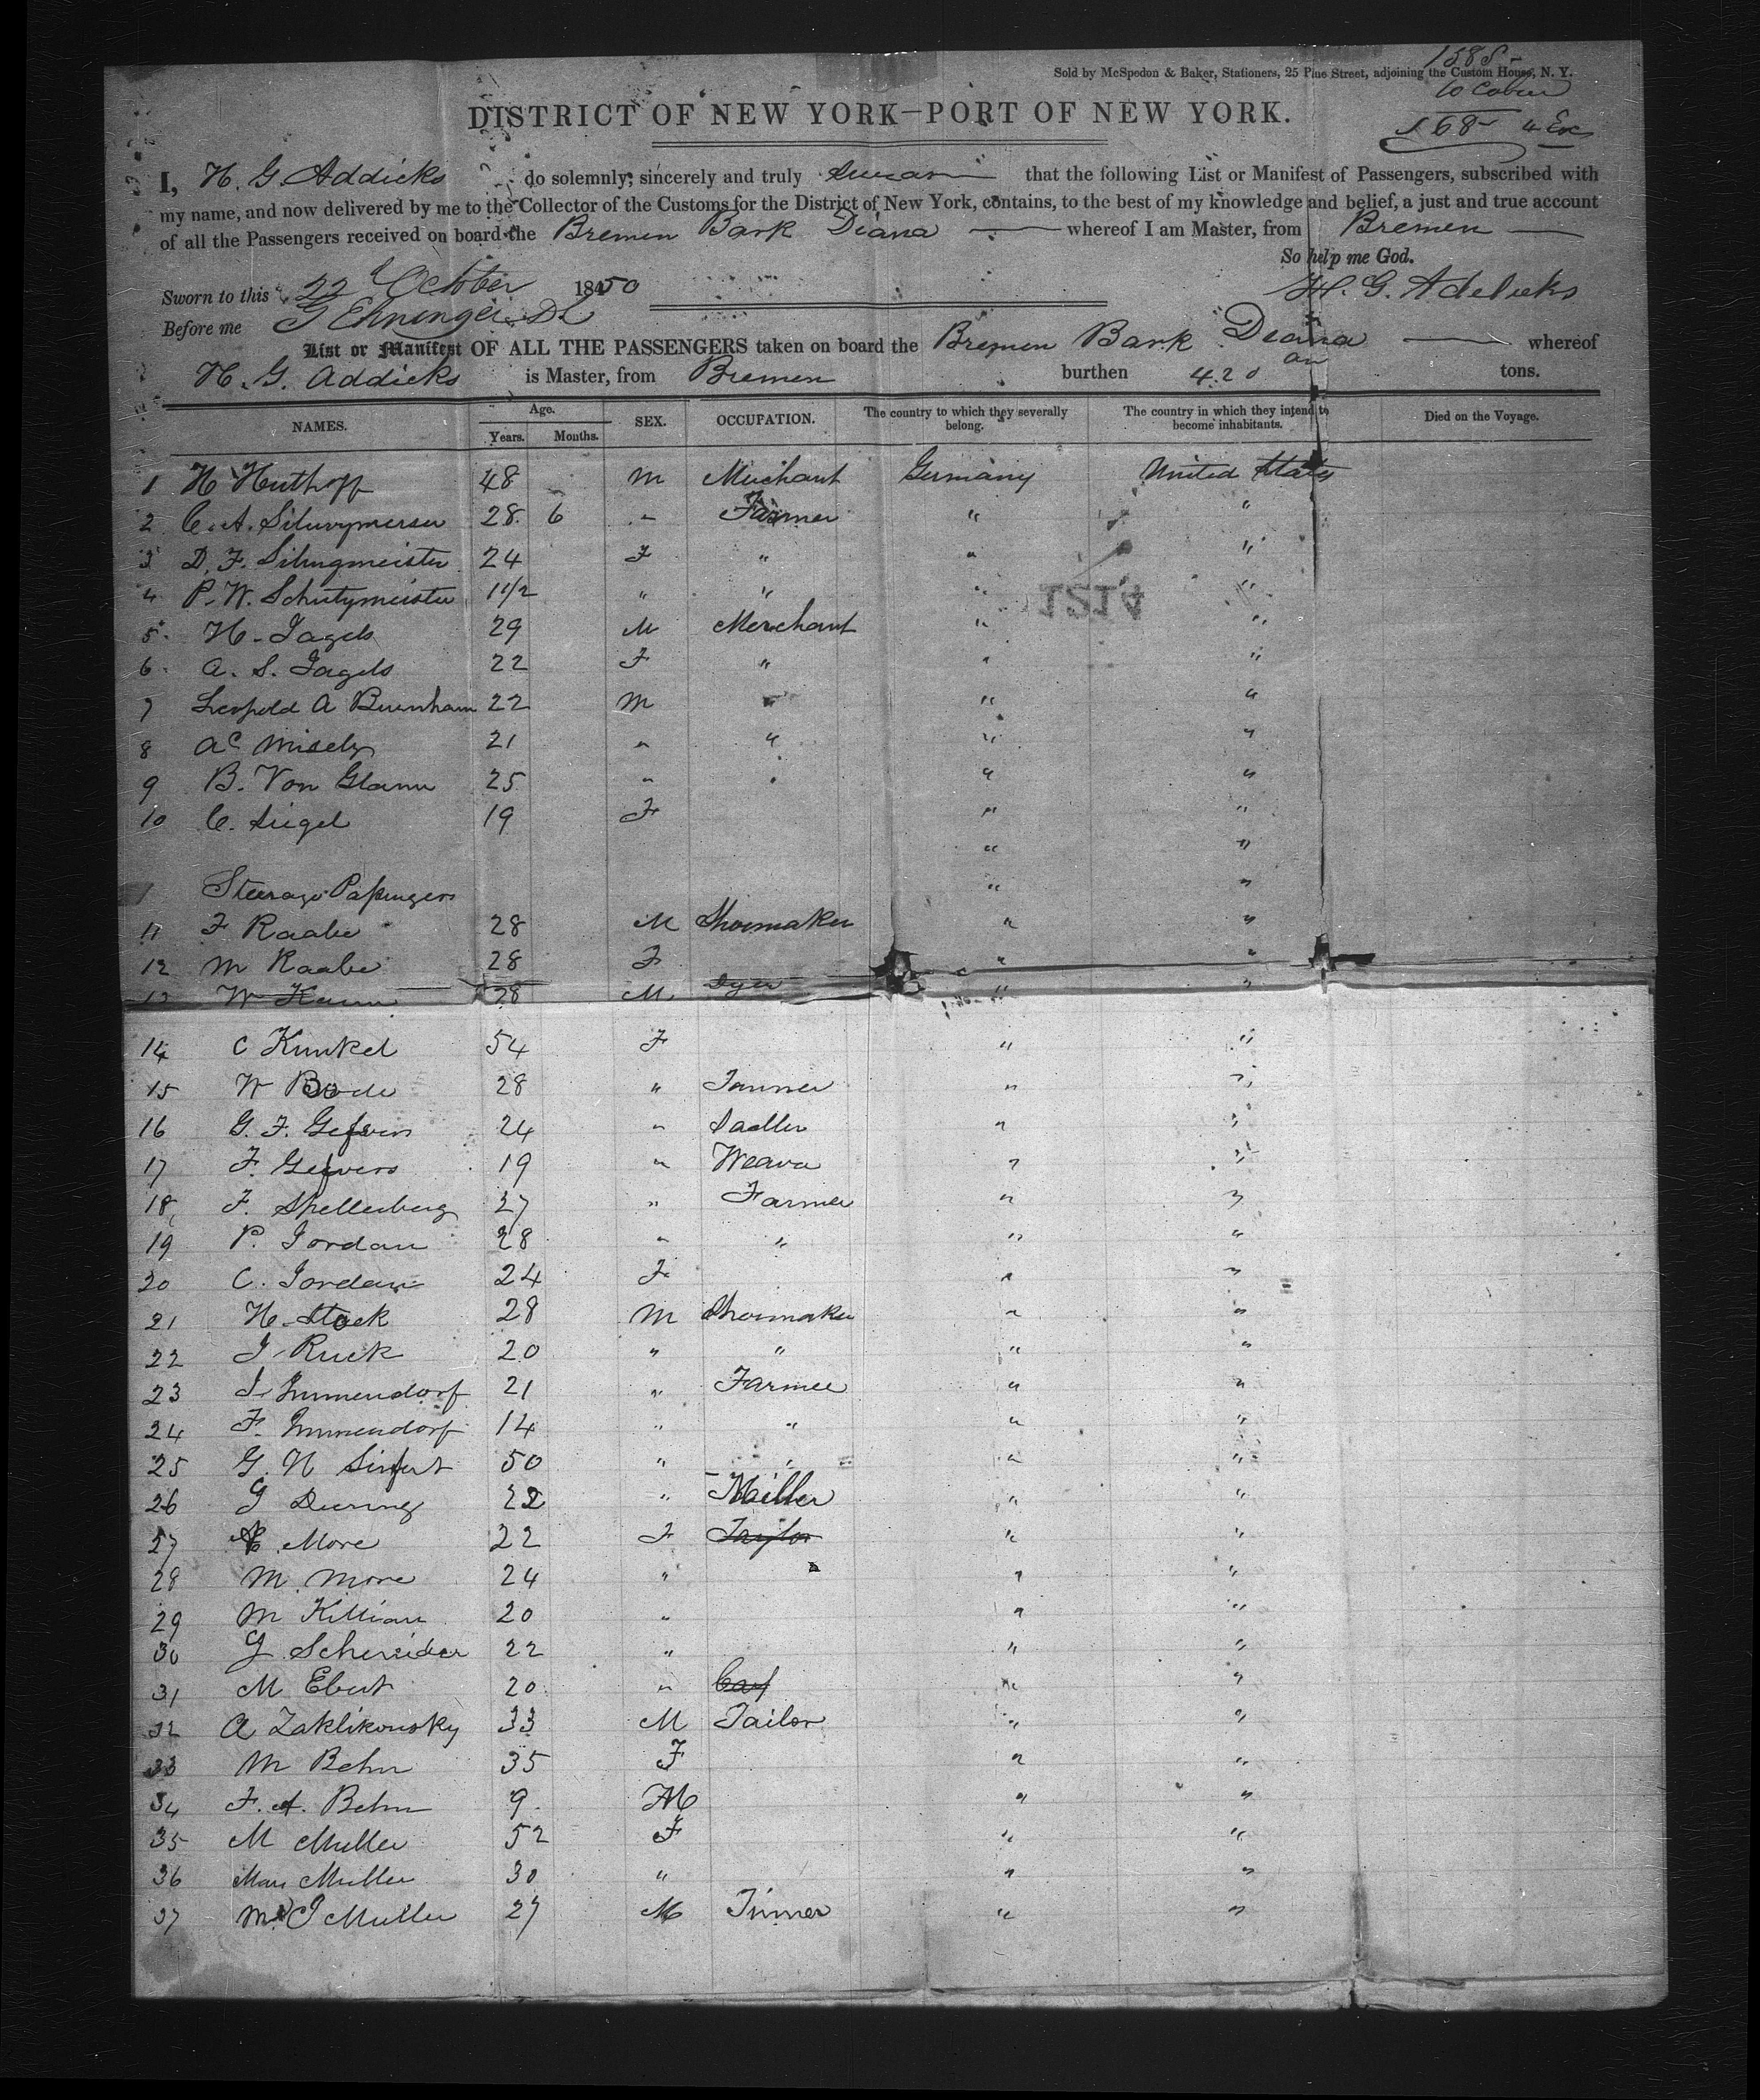 158 -
Sold by McSpedon & Baker, Stationers, 25 Pine Street, adjoining the Custom House, N. Y.
10 Cabin
168 4
DISTRICT OF NEW YORK—PORT OF NEW YORK.
I, H. G. Addicks do solemnly, sincerely and truly swear that the following List or Manifest of Passengers, subscribed with
my name, and now delivered by me to the Collector of the Customs for the District of New York, contains, to the best of my knowledge and belief, a just and true account
of all the Passengers received on board the Bremen Bark Diana — whereof I am Master, from Bremen —
So help me God.
Sworn to this 22 October 1850 H. G. Addicks
Before me G Ehninger
List or Manifest OF ALL THE PASSENGERS taken on board the Bremen Bark Diana — whereof
H. G. Addicks is Master, from Bremen burthen 420 tons.
NAMES. Age. Years. Months. SEX. OCCUPATION. The country to which they severally belong. The country in which they intend to become inhabitants. Died on the Voyage.
1 H Huthoff 48 M Merchant Germany United States
2 C. A. 28 6 " Farmer " "
3 D. F. 24 F " " "
4 P. W. Schutymeister 1 1/2 " " " "
1214
5 H. Jagels 29 M Merchant " "
6 A. S. Jagels 22 F " " "
7 Leopold A Burnham 22 M " " "
8 21 " " " "
9 B. Von Glann 25 " " "
10 C. Siegel 19 F " "
" "
Steerage Passengers " "
11 F Raabe 28 M Shoemaker " "
12 M Raabe 28 F " "
13 W 28 M Dyer " "
14 C Kunkel 54 F " "
15 W Bode 28 " Tanner " "
16 G. F. 24 " Sadler " "
17 F. 19 " Weaver " "
18 F. Shellerberg 27 " Farmer " "
19 P. Jordan 28 " " " "
20 C. Jordan 24 F " "
21 H. Stock 28 M Shoemaker " "
22 J. Ruck 20 " " " "
23 J. Immendorf 21 " Farmer " "
24 F. Immendorf 14 " " " "
25 G. H 50 " " " "
26 G Duering 22 " Miller " "
27 More 22 F Taylor " "
28 M. More 24 " " "
29 M Killian 20 " " "
30 G. Schneider 22 " " "
31 M Ebert 20 " " "
32 A Zaklikousky 33 M Tailor " "
33 M Behn 35 F " "
34 F. A. Behn 9 M " "
35 M Muller 52 F " "
36 Mary Muller 30 " " "
37 J Muller 27 M Tinner " "